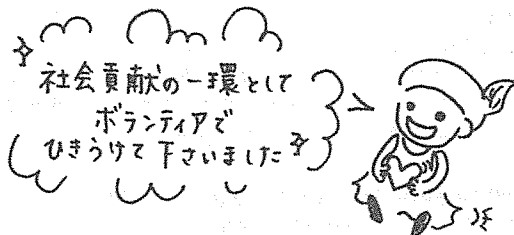 社会貢献の一環として
ボランティアで
ひきうけて下さいました